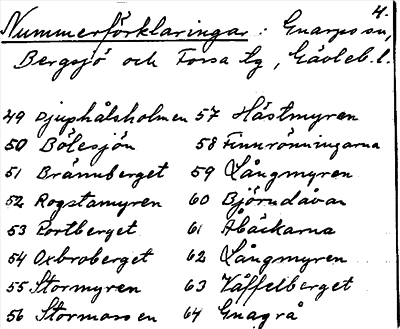 4.
Nummerförklaringar: Gnarps sn,
Bergsjö och Forsa tg, Gävleb. l.
49 Djuphålsholmen 57 Hästmyren
50 Bölesjön 58 Finnrönningarna
51 Brännberget 59 Långmyren
52 Rogstamyren 60 Björndåvan
53 Portberget 61 Åbäckarna
54 Oxbroberget 62 Långmyren
55 Stormyren 63 Våffelberget
56 Stormossen 64 Gnagrå